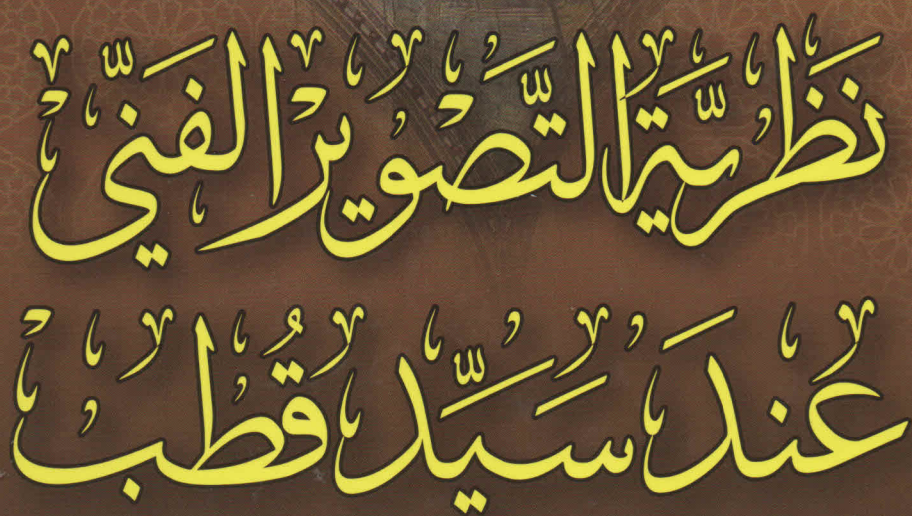 نَظَريَّةُ التَّصْويرِ الفَنّيّ
عندَ سَيِّد قُطب